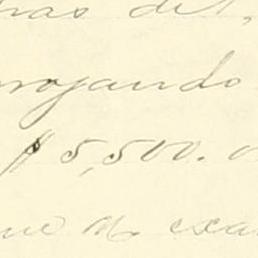 ras del,
rojando
$5,500. o
ue M. exa